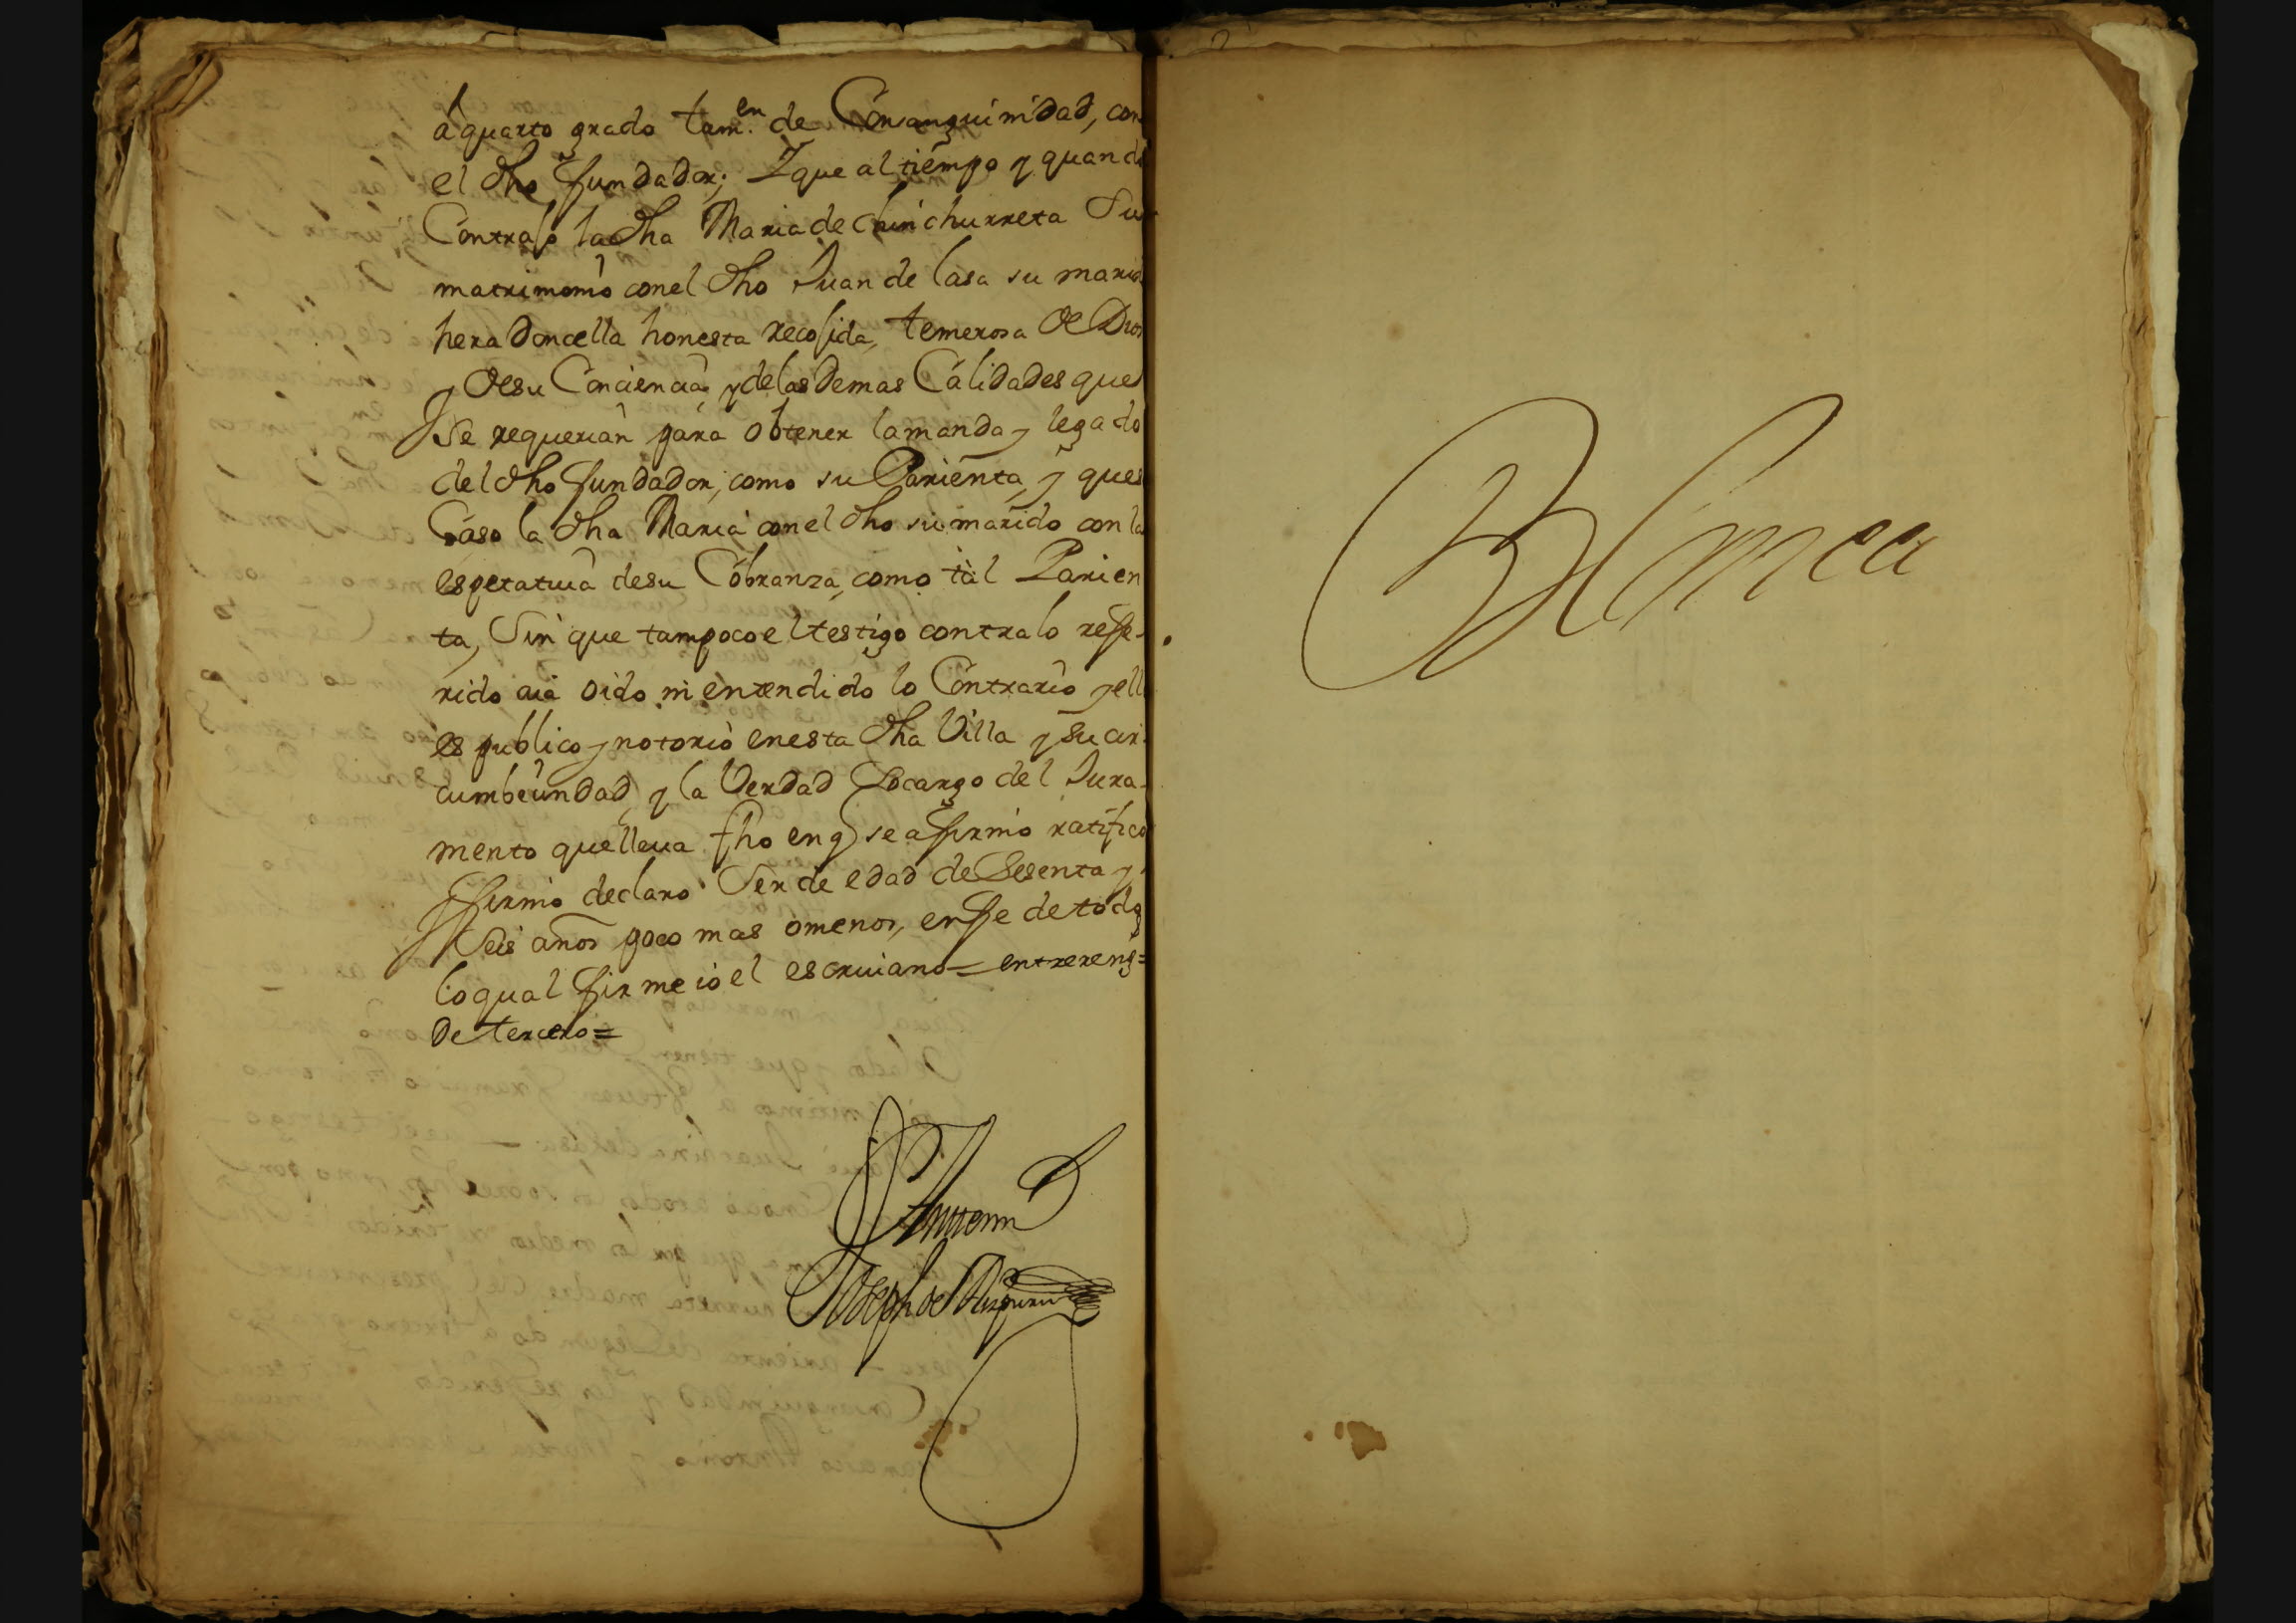 a quarto grado tam.en de Consanguinidad, con
el dho fundador; Y que al tiempo y quando
Contrajo la dha Maria de Chinchurreta Su
matrimonio con el dho Juan de lasa su marid
hera Doncella honesta recojida, temerosa de Dios
y de su Conciencia, y de las Demas Calidades que
Se requerian para obtener la manda y legado
del dho fundador, como su Parienta, y que
Caso la dha Maria con el dho su marido con la
espectatiua de su Cobranza, como tal Parien
ta, Sin que tampoco el testigo contra lo refe-
rido aia oido ni entendido lo Contrario y ell
es publico y notorio en esta dha Villa y su cir
cumbeundad, y la Verdad Socargo del Jura-
mento que lleua fho en q se afirmo ratifico
y firmo declaro Ser de edad de Sesenta y
Seis años poco mas o menos, en fe de todo
lo qual firme io el escriuano = entrereng =
de tercero =
Joseph de
Blanca